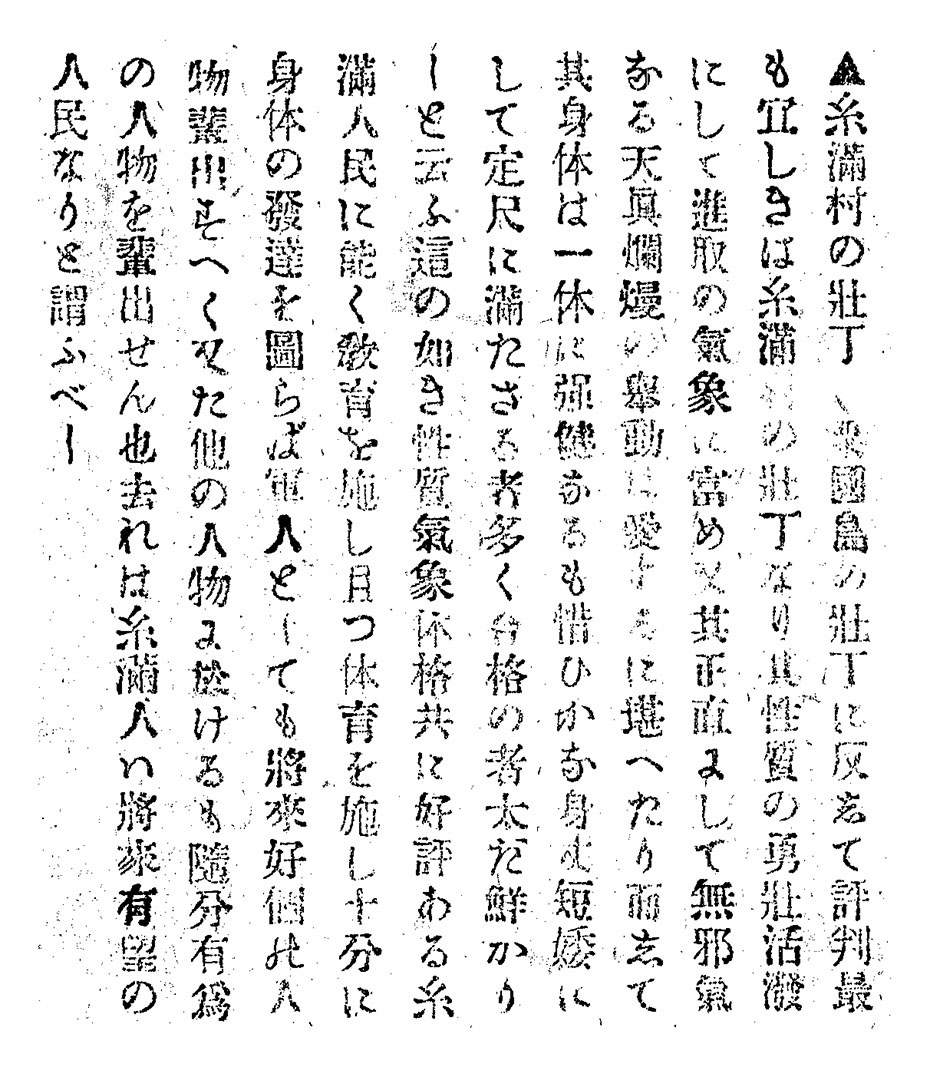 ▲糸滿村の壯丁 粟國島の壯丁に反志て評判最
も宜しきは糸滿村の壯丁なり其性質の勇壯活潑
にして進取の氣象に富め又其正直にして無邪氣
なる天眞爛熳の舉動は愛するに堪へたり而志て
其身体は一体に强健なるも惜ひかな身丈短矮に
して定尺に滿たさる者多く合格の者太だ鮮かり
しと云ふ這の如き性質氣象体格共に好評ある糸
滿人民に能く敎育を施し且つ体育を施し十分に
身体の發達を圖らば軍人としても將來好個の人
物輩出すへく又た他の人物に於けるも隨分有爲
の人物を輩出せん也去れは糸滿人ハ將來有望の
人民なりと謂ふべし